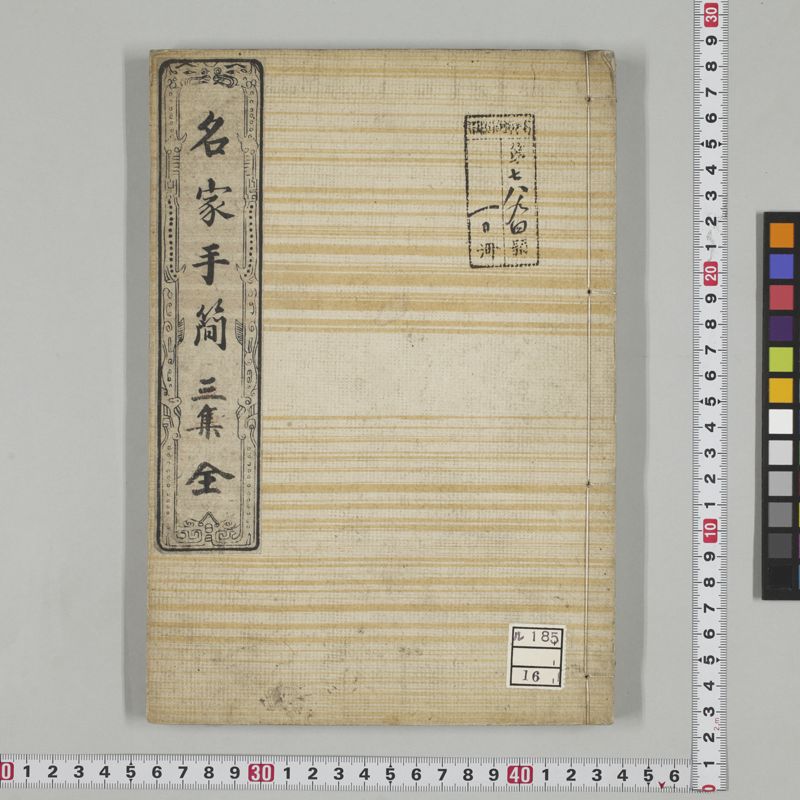 名家手簡 三集 全
第七八九四號
一日冊
ル185
16
30
9
8
7
6
5
4
3
2
1
20
9
8
7
6
5
4
3
2
1
10
9
8
7
6
5
4
3
2
1
0
0 1 2 3 4 5 6 7 8 9 30 1 2 3 4 5 6 7 8 9 40 1 2 3 4 5 6